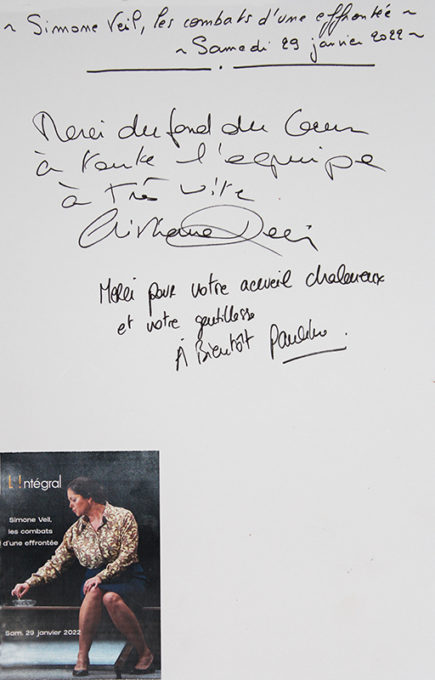 ~ Simone Veil, les combats d'une effrontée ~
~ Samedi 29 janvier 2022 ~
Merci du fond du Cœur
à toute l'equipe
à très vite
Merci pour votre accueil chaleureux
et votre gentillesse
À Bientôt Pauline
L'!ntégral
Simone Veil,
les combats
d'une effrontée
Sam. 29 janvier 2022